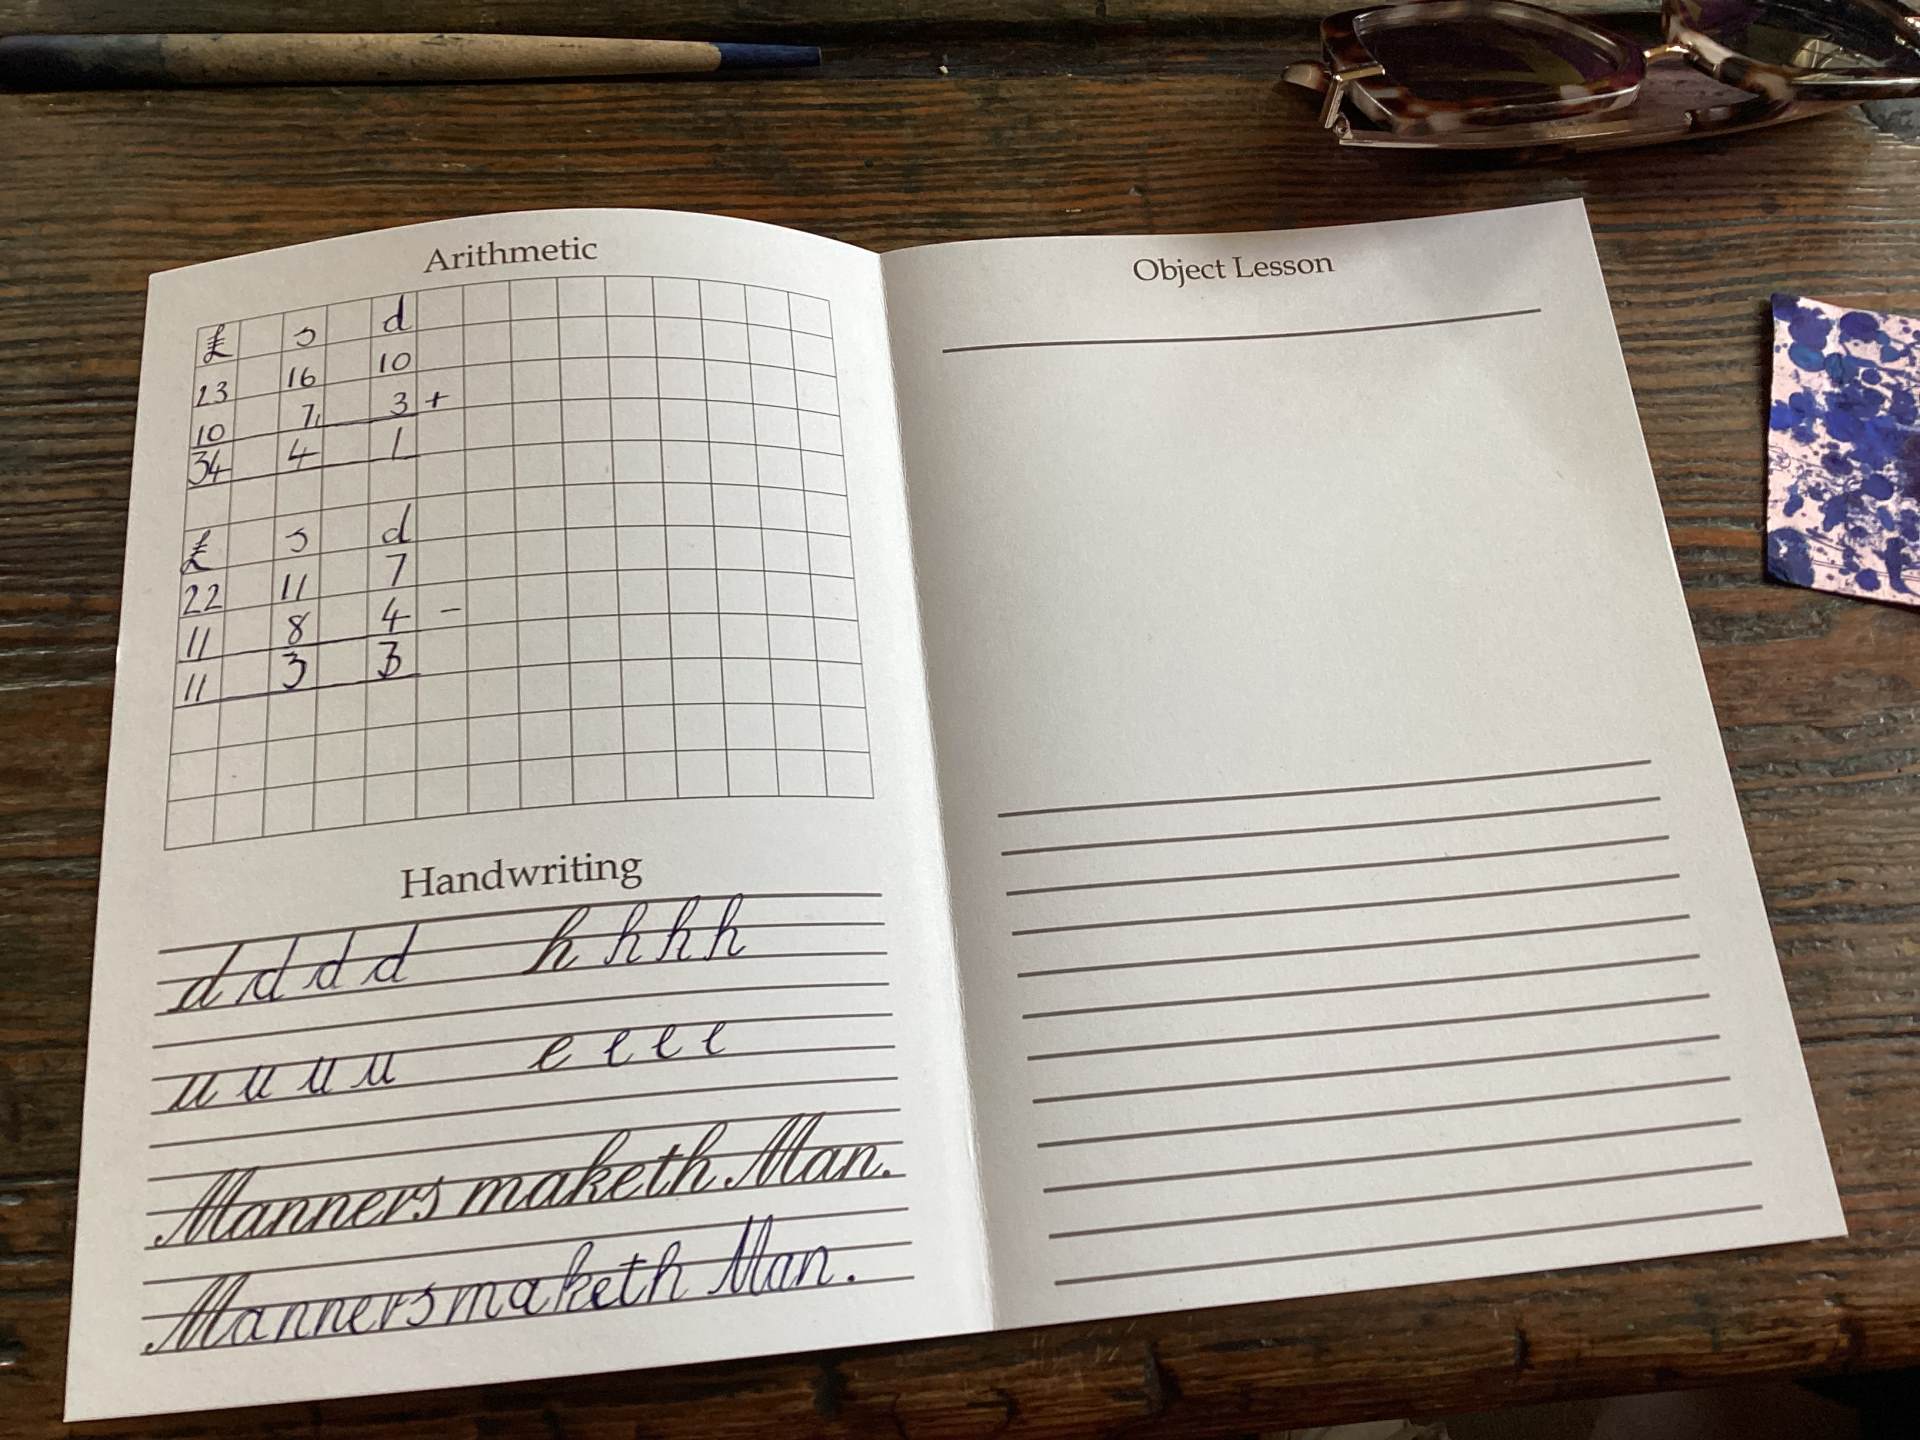 Arithmetic
£ s d
23 16 10
10 7 3 +
34 4 1
£ s d
22 11 7
11 8 4 -
11 3 3
Handwriting
d d d d h h h h
u u u u e e e e
Manners maketh Man.
Manners maketh Man.
Object Lesson